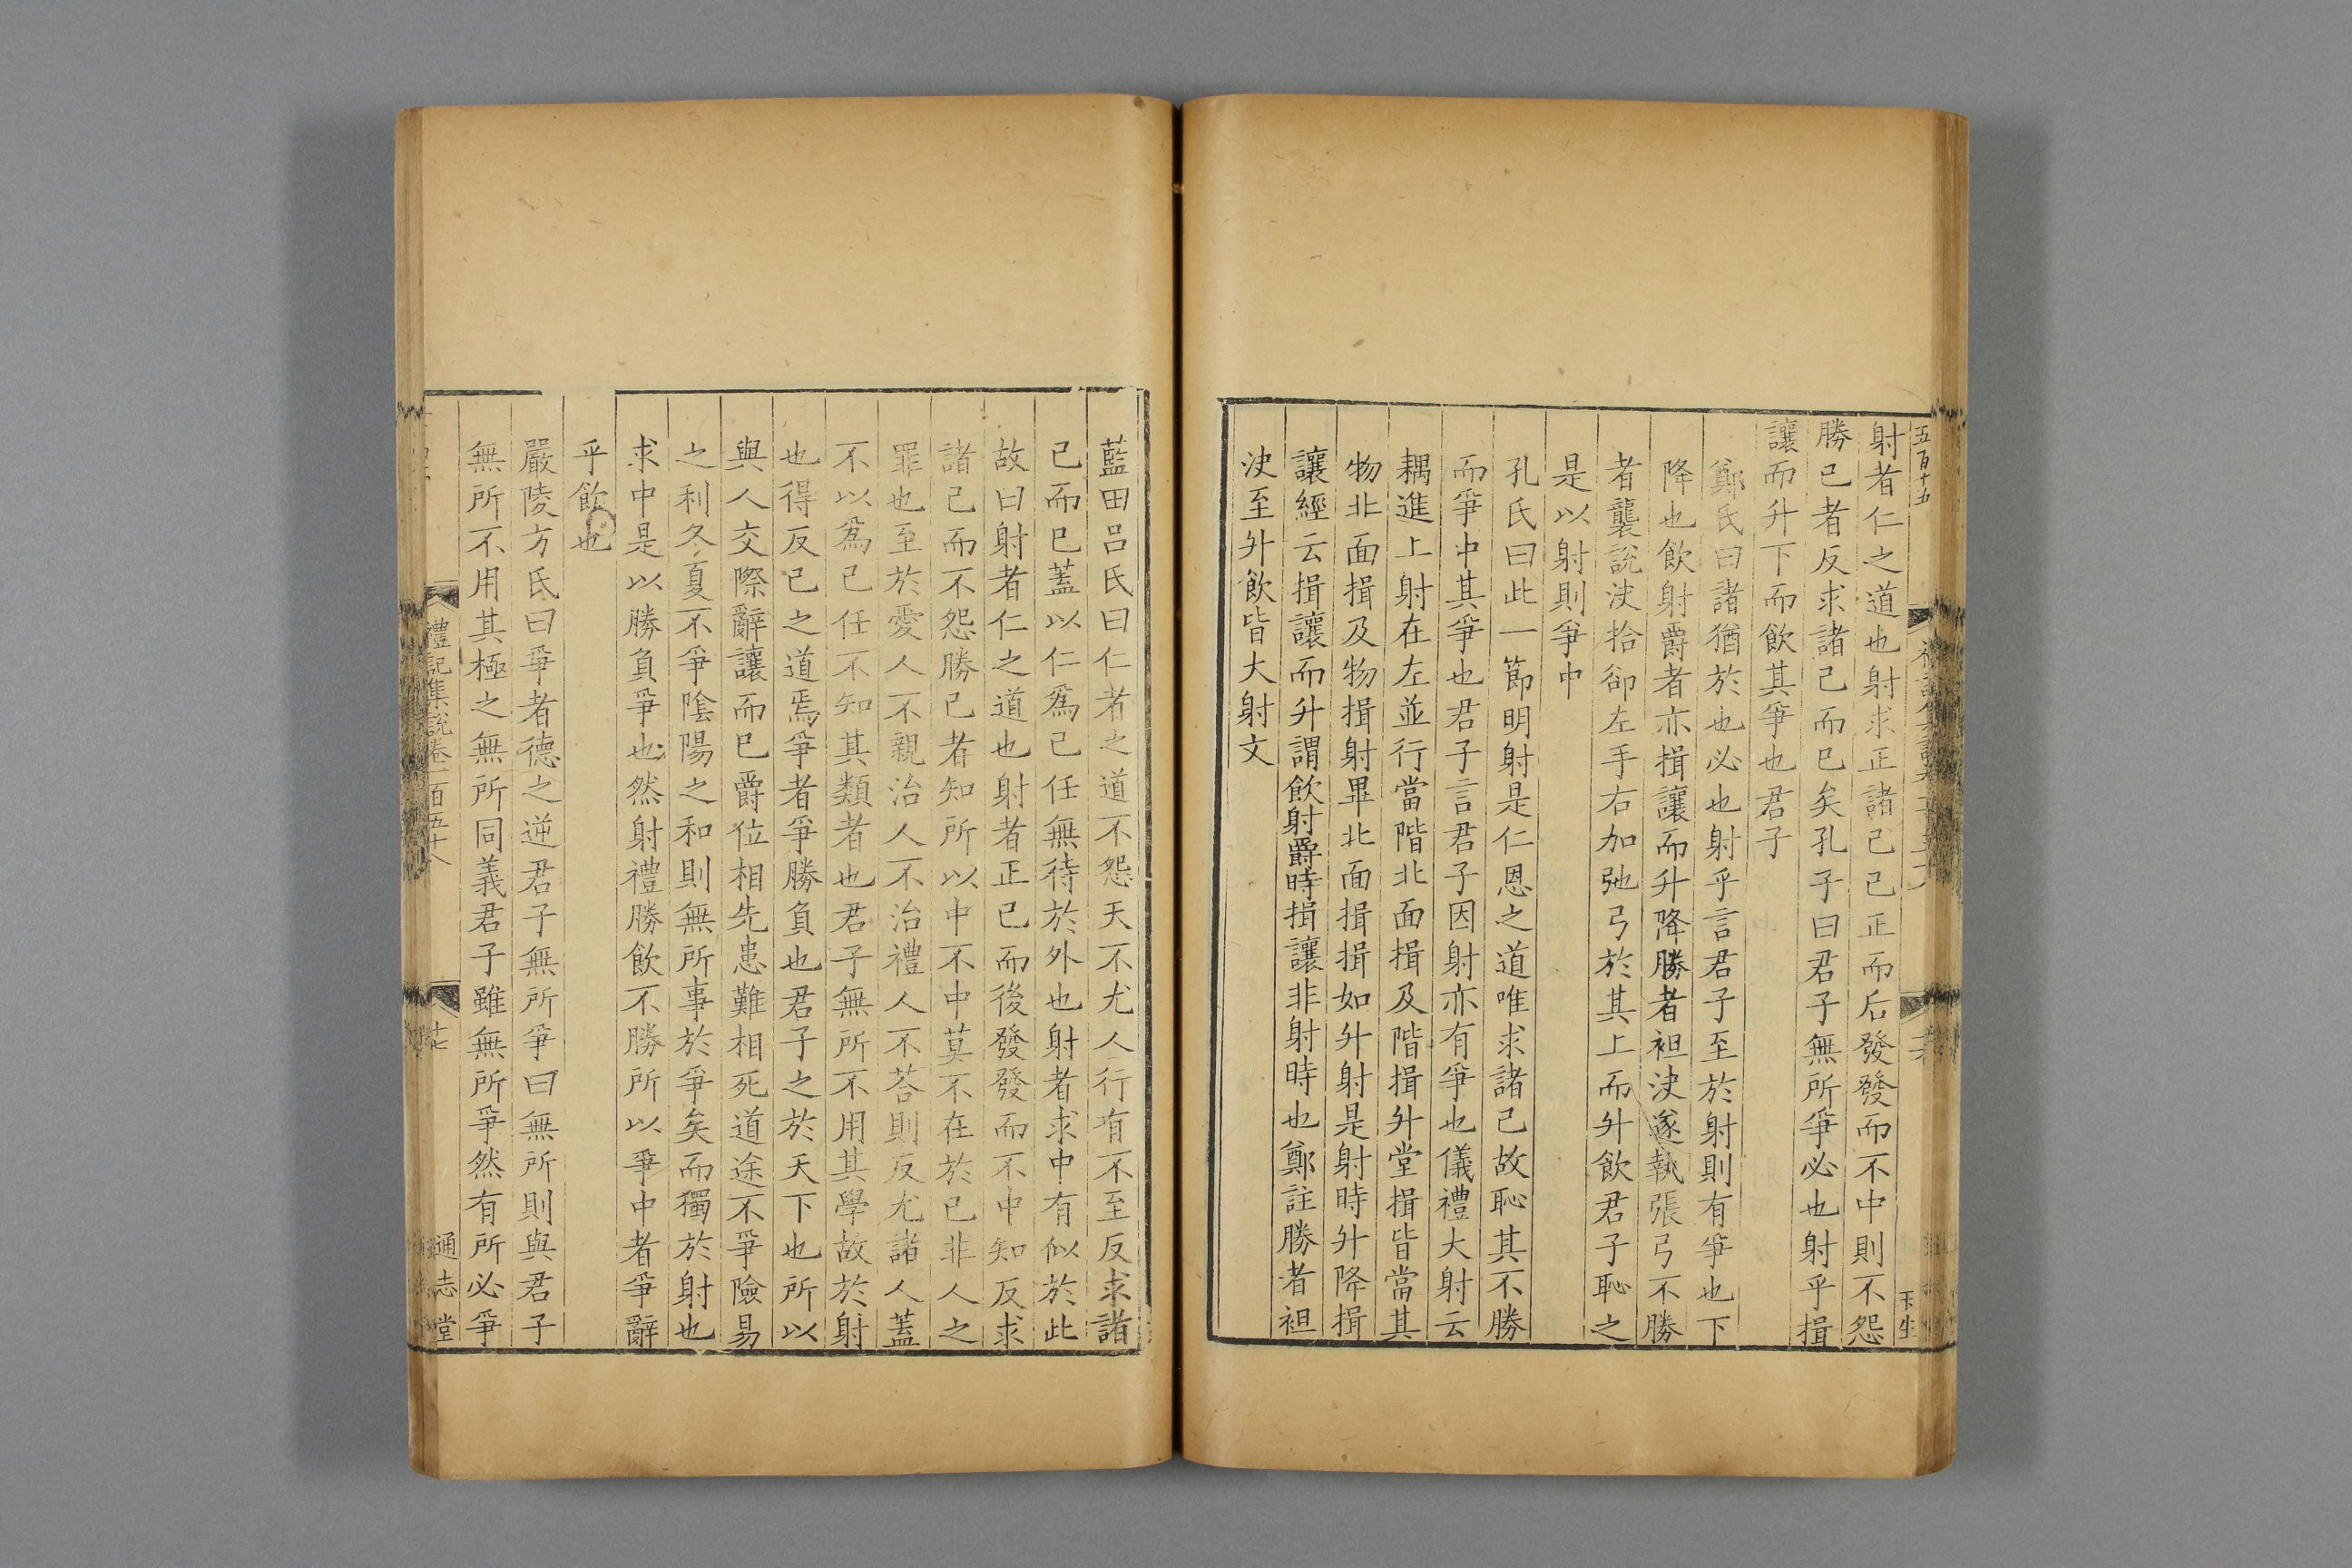 五百十五
玉生
射者仁之道也射求正諸己己正而后發發而不中則不怨
勝己者反求諸己而已矣孔子曰君子無所爭必也射乎揖
讓而升下而飲其爭也君子
鄭氏曰諸猶於也必也射乎言君子至於射則有爭也下
降也飲射爵者亦揖讓而升降勝者袒决遂執張弓不勝
者襲說决拾卻左手右加弛弓於其上而升飲君子恥之
是以射則爭中
孔氏曰此一節明射是仁恩之道唯求諸己故恥其不勝
而爭中其爭也君子言君子因射亦有爭也儀禮大射云
耦進上射在左並行當階北面揖及階揖升堂揖皆當其
物北面揖及物揖射畢北面揖揖如升射是射時升降揖
讓經云揖讓而升謂飲射爵時揖讓非射時也鄭註勝者袒
决至升飲皆大射文
藍田呂氏曰仁者之道不怨天不尤人行有不至反求諸
己而已蓋以仁爲己任無待於外也射者求中有似於此
故曰射者仁之道也射者正己而後發發而不中知反求
諸己而不怨勝己者知所以中不中莫不在於己非人之
罪也至於愛人不親治人不治禮人不荅則反尤諸人蓋
不以爲己任不知其類者也君子無所不用其學故於射
也得反己之道焉爭者爭勝負也君子之於天下也所以
與人交際辭讓而已爵位相先患難相死道途不爭險易
之利冬夏不爭陰陽之和則無所事於爭矣而獨於射也
求中是以勝負爭也然射禮勝飲不勝所以爭中者爭辭
乎飲也
嚴陵方氏曰爭者德之逆君子無所爭曰無所則與君子
無所不用其極之無所同義君子雖無所爭然有所必爭
禮記集說卷一百五十八
十七
通志堂